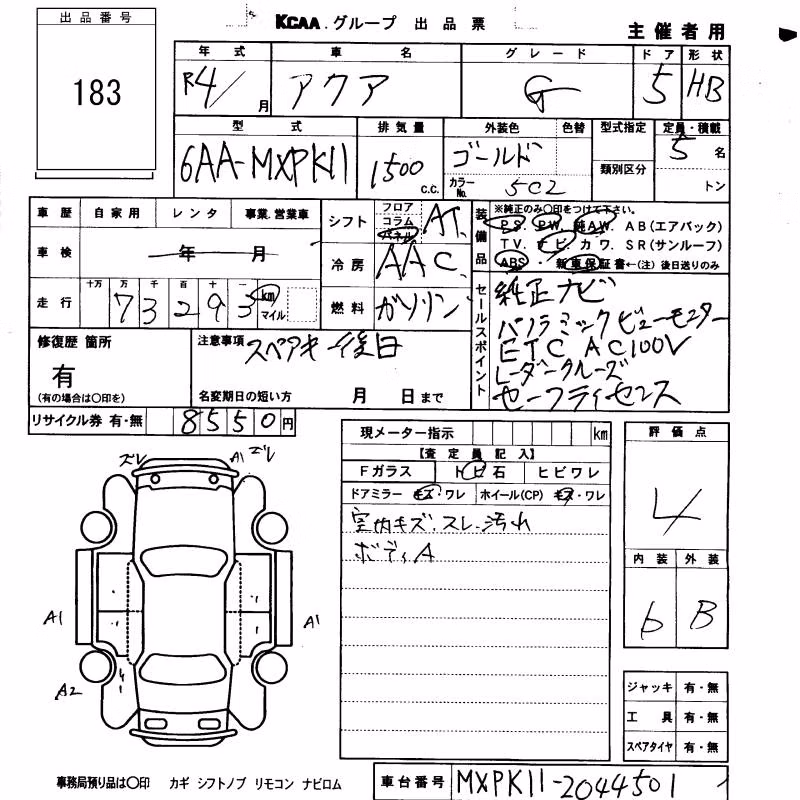 出品番号
183
KCAA.グループ 出品票
主催者用
年式 車名 グレード ドア 形状
R4/ 月 アクア G 5 HB
型式 排気量 外装色 色替 型式指定 定員・積載
6AA-MXPK11 1500 c.c. ゴールド 5 名
カラーNo. 5C2 類別区分 トン
車歴 自家用 レンタ 事業.営業車
車検 年 月
走行 十万 万 千 百 十 一
73293 km マイル
シフト フロア コラム パネル AT
冷房 AAC
燃料 ガソリン
装備品
※純正のみ〇印をつけて下さい。
P.S. P.W. 純A.W. A B (エアバック)
T V. ナビ. カワ. S R (サンルーフ)
ABS ・ 新車保証書←(注) 後日送りのみ
セールスポイント
純正ナビ
パノラミックビューモニター
ETC AC100V
レーダークルーズ
セーフティセンス
修復歴 箇所
有
(有の場合は〇印を)
注意事項 スペアキー後日
名変期日の短い方 月 日まで
リサイクル券 有・無 8550円
現メーター指示 km
【査定員記入】
Fガラス トビ石 ヒビワレ
ドアミラー キズ・ワレ ホイール(CP) キズ・ワレ
室内キズ.スレ.汚れ
ボディA
評価点
4
内装 外装
6 B
ズレ A1 ズレ
A1 A1
A2
ジャッキ 有・無
工具 有・無
スペアタイヤ 有・無
事務局預り品は〇印 カギ シフトノブ リモコン ナビロム
車台番号 MXPK11-2044501